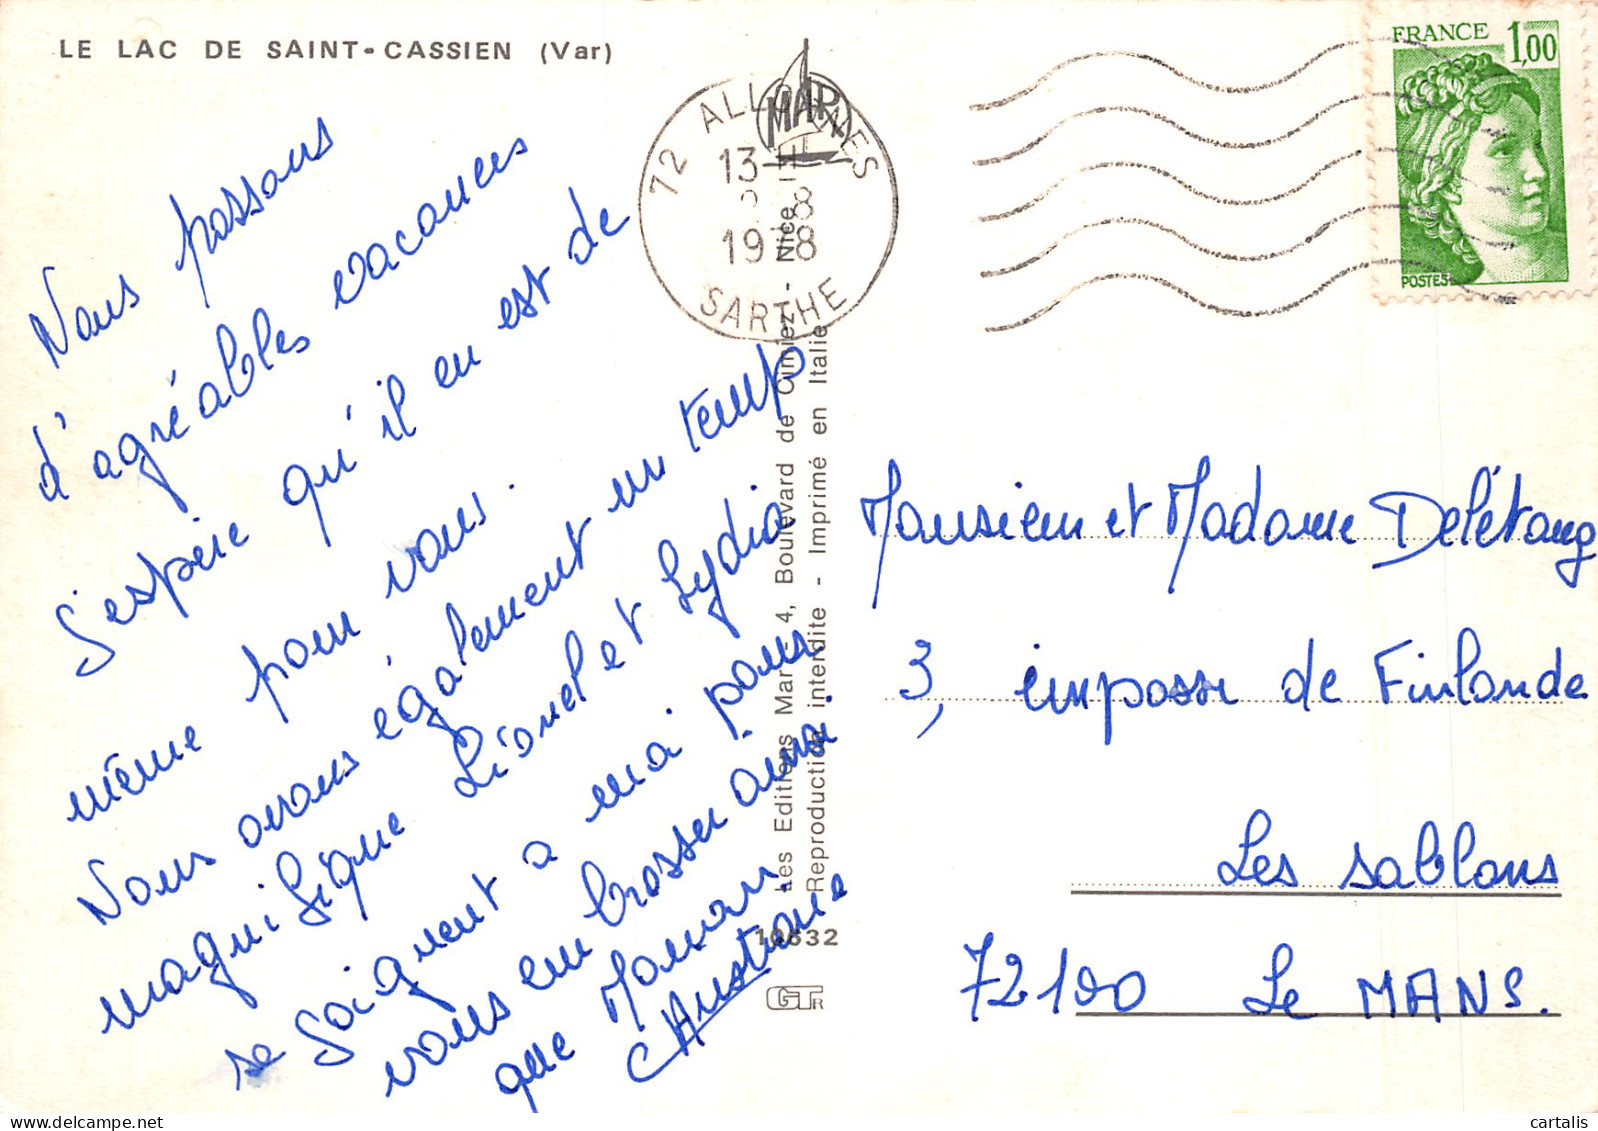 LE LAC DE SAINT-CASSIEN (Var)
Nous passons
d'agréables vacances
J'espère qu'il en est de
même pour vous.
Nous avons également un temp
magnifique Lionel et Lydia
se soignent à ma pour
vous em brasser ainsi
que Maman.
Christiane
72 ALLONNES
13 H
8
1978
SARTHE
MAR
Les Editions Mar - 4, Boulevard de Cimiez - Nice
Reproduction interdite - Imprimé en Italie
10632
GTR
FRANCE 1,00
POSTES
Monsieur et Madame Delétang
3, impasse de Finlande
Les Sablons
72100 Le MANS.
cartalis